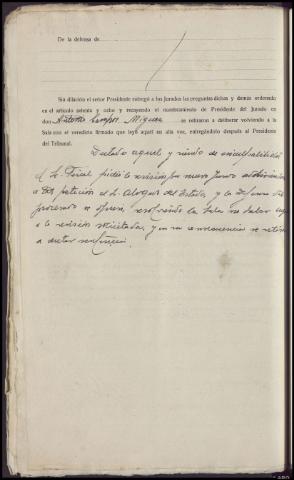 De la defensa de
Sin dilación el señor Presidente entregó a los Jurados las preguntas dichas y demás ordenado
en el artículo setenta y ocho y recayendo el nombramiento de Presidente del Jurado en
don Antonio Campos Miguez se retiraron a deliberar volviendo a la
Sala con el veredicto firmado que leyó aquél en alta voz, entregándolo después al Presidente
del Tribunal.
Dictado aquel y siendo de inculpabilidad
el Sr. Fiscal pidió la revisión por nuevo Jurado adhiriéndose
a esa petición el Sr. Abogado del Estado, y la defensa del
procesado se opuso, resolviendo la Sala no haber lugar
a la revisión solicitada, y en su consecuencia se retiró
a dictar sentencia.